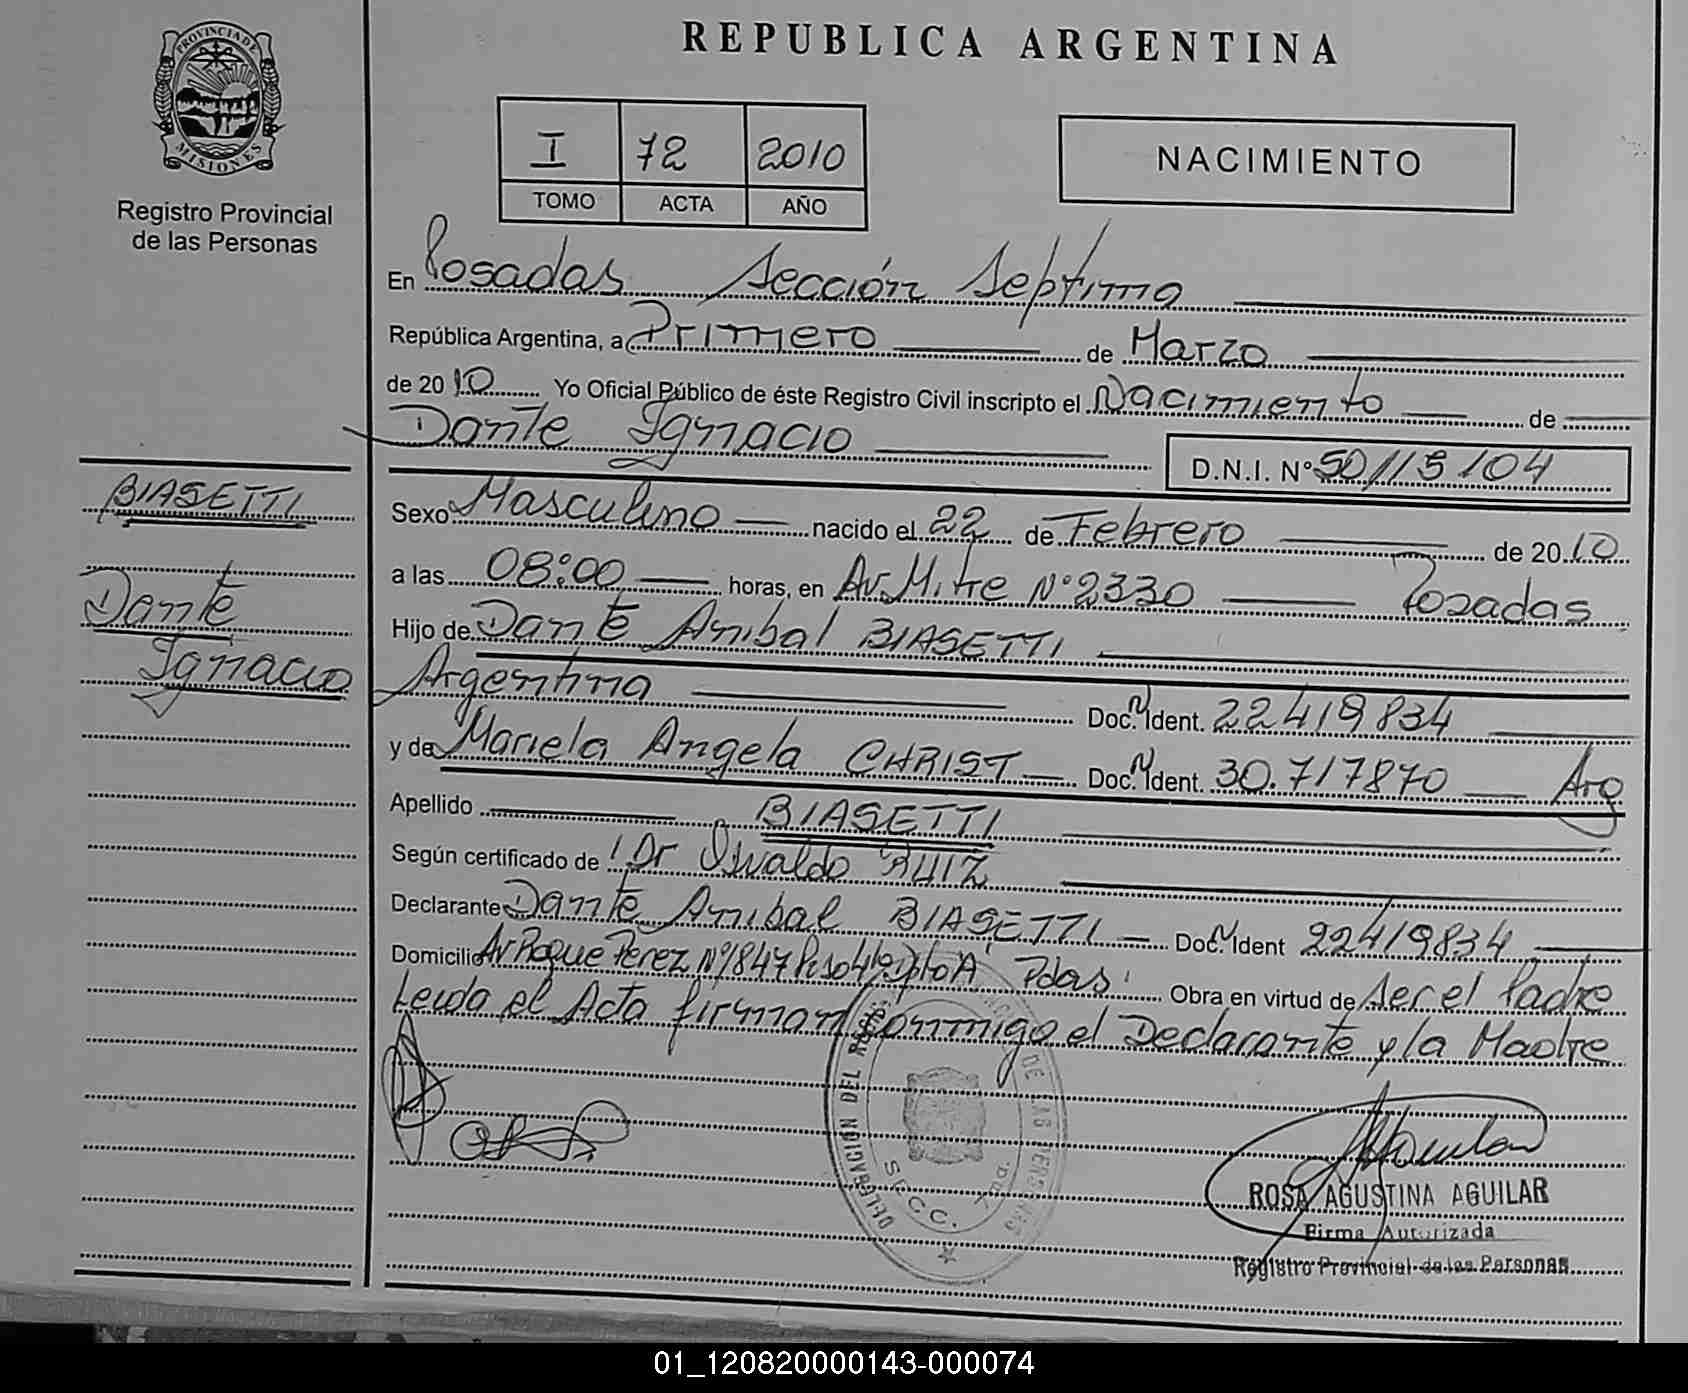 REPUBLICA ARGENTINA
PROVINCIA DE
MISIONES
Registro Provincial
de las Personas
I 72 2010
TOMO ACTA AÑO
NACIMIENTO
En Posadas Sección Septima
República Argentina, a Primero de Marzo
de 2010 Yo Oficial Público de éste Registro Civil inscripto el Nacimiento de
Dante Ignacio D.N.I. N° 50115104
BIASETTI
Dante
Ignacio
Sexo Masculino nacido el 22 de Febrero de 2010
a las 08:00 horas, en Av. Mitre N° 2330 Posadas
Hijo de Dante Anibal BIASETTI
Argentina Doc. Ident. 22419834
y de Mariela Angela CHRIST Doc. Ident. 30.717870 Arg
Apellido BIASETTI
Según certificado de Dr Osvaldo RUIZ
Declarante Dante Anibal BIASETTI Doc. Ident 22419834
Domicilio Av Roque Perez N° 1847 Piso 4 Dpto A Pdas. Obra en virtud de Ser el Padre
Leida el Acta firman conmigo el Declarante y la Madre
DELEGACIÓN DEL REGISTRO DE LAS PERSONAS
SECC. 7ma.
ROSA AGUSTINA AGUILAR
Firma Autorizada
Registro Provincial de las Personas
01_120820000143-000074